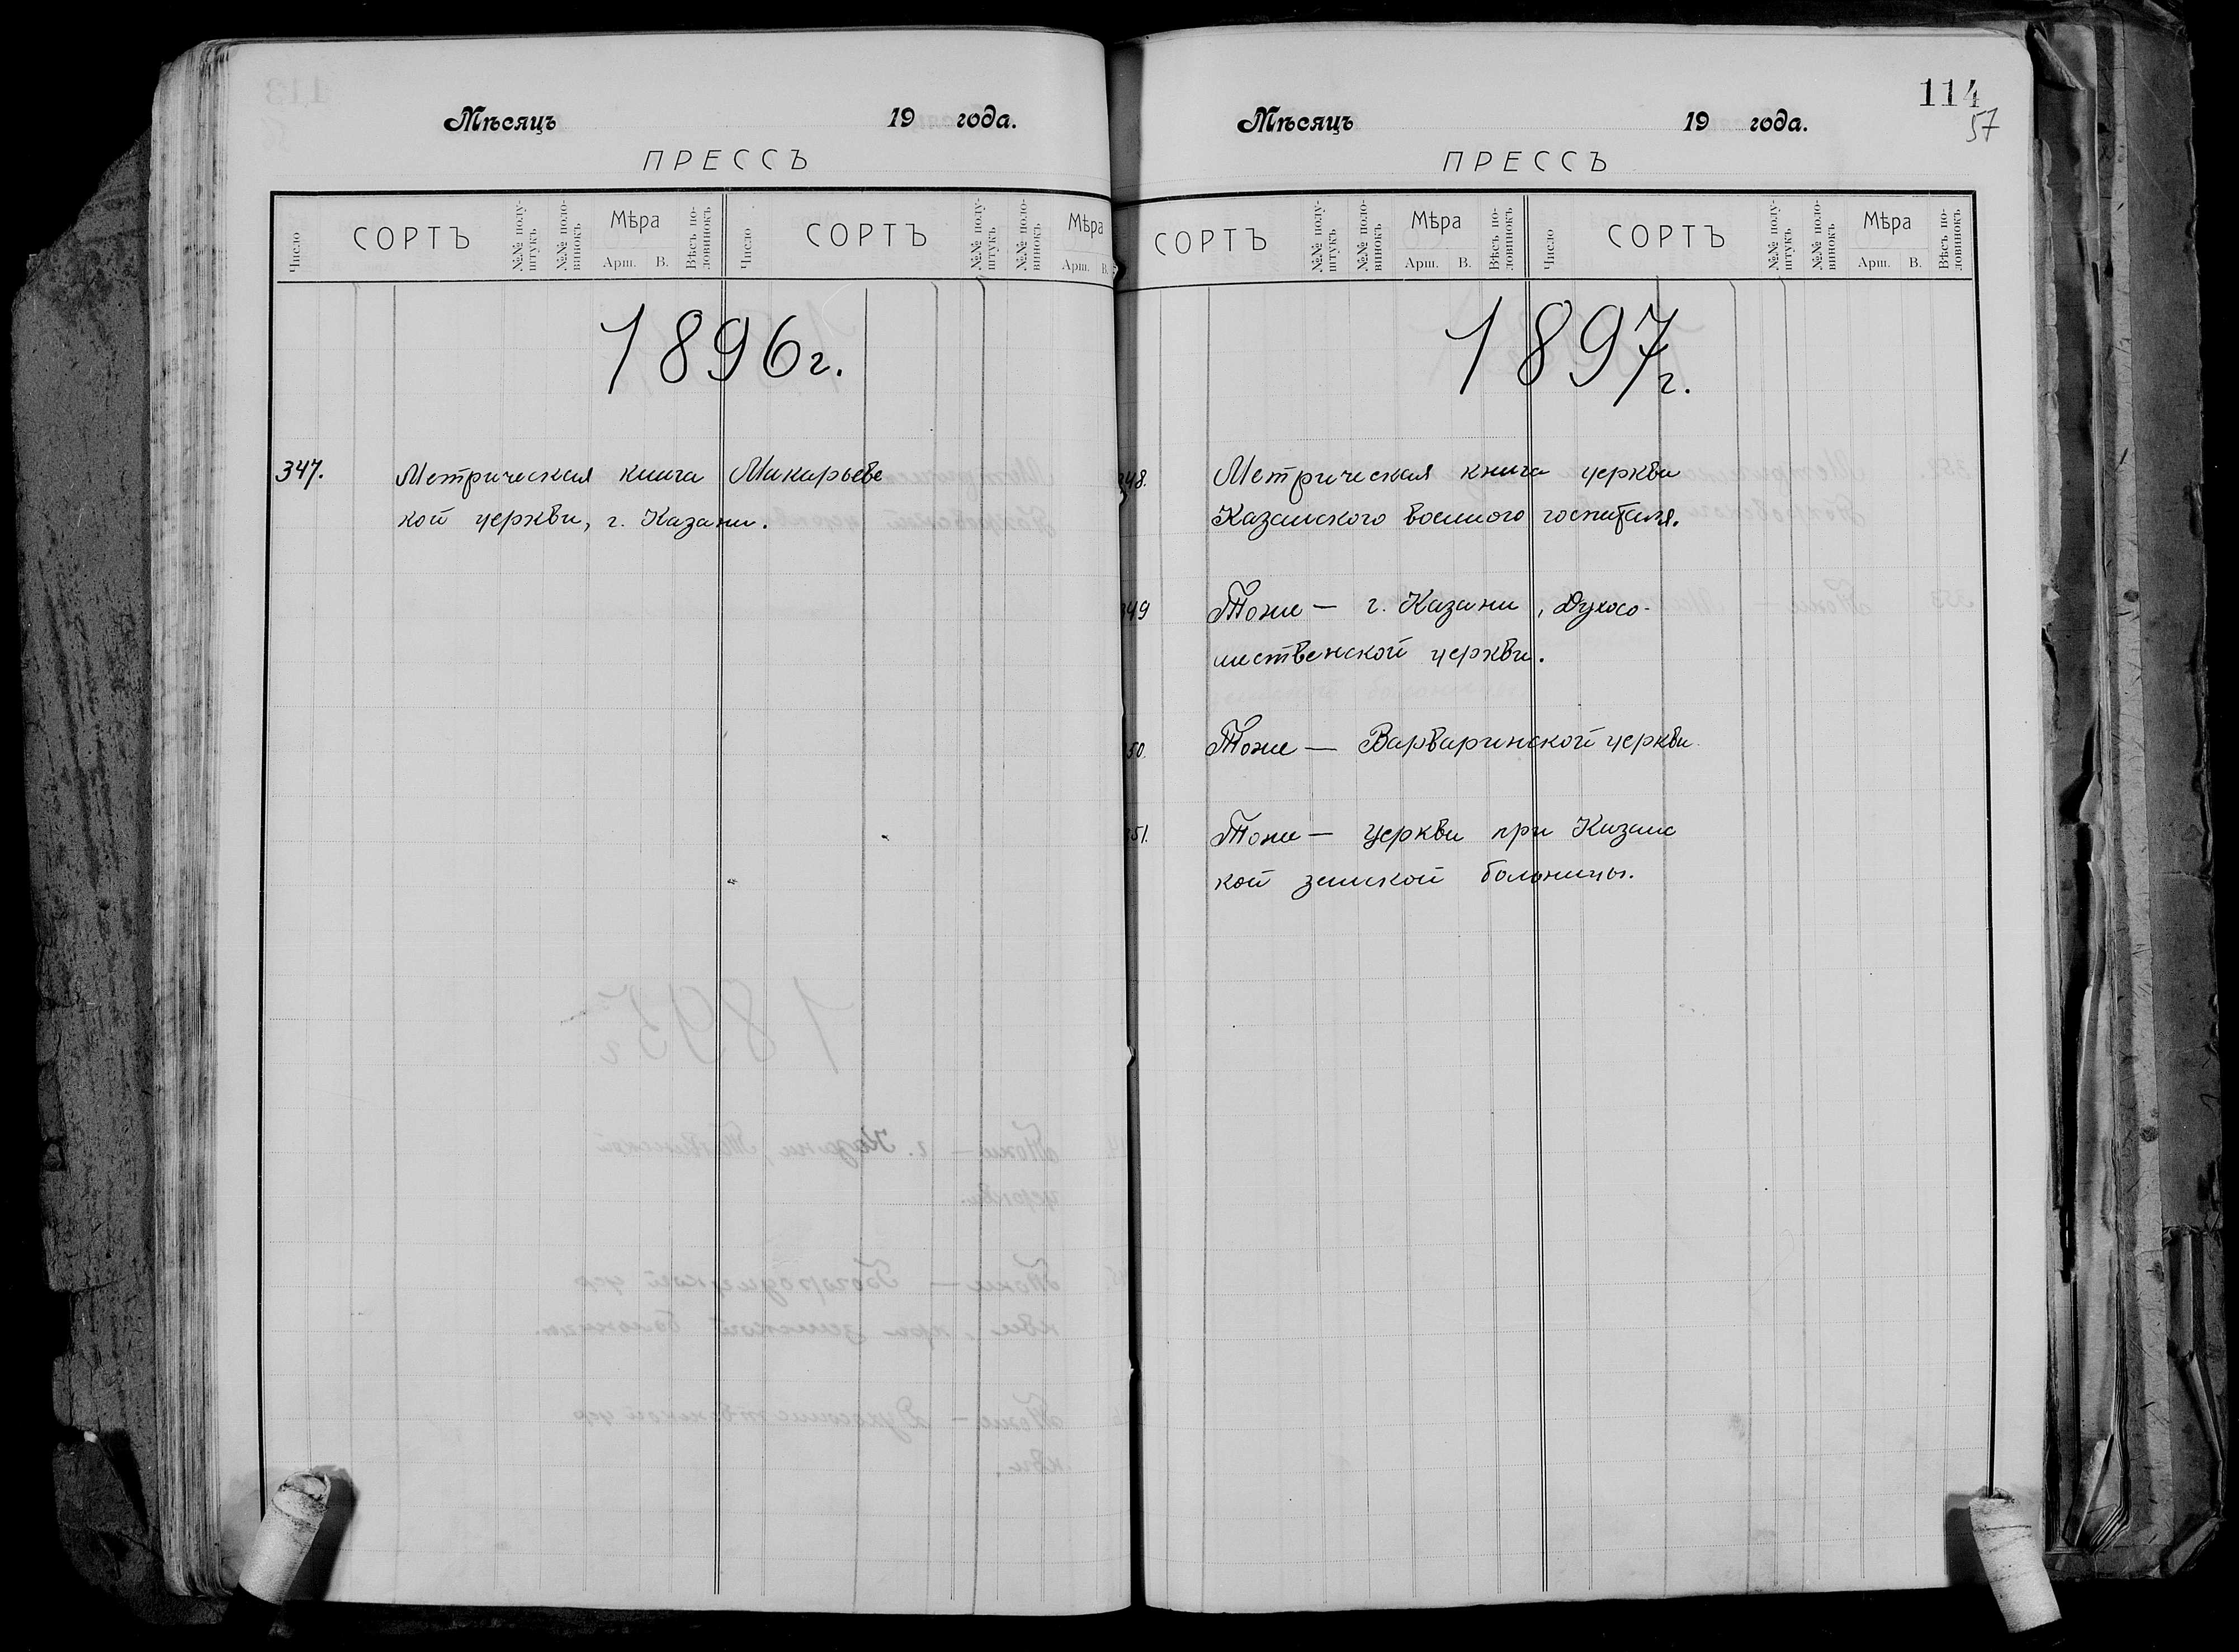 Мѣсяцъ 19 года.
ПРЕССЪ
Число СОРТЪ №№ полу-штукъ №№ поло-винокъ Мѣра Арш. В. Вѣсъ по-ловинокъ Число СОРТЪ №№ полу-штукъ №№ поло-винокъ Мѣра Арш. В.
1896 г.
347. Метрическая книга Макарьевс
кой церкви, г. Казани.
114
57
Мѣсяцъ 19 года.
ПРЕССЪ
СОРТЪ №№ полу-штукъ №№ поло-винокъ Мѣра Арш. В. Вѣсъ по-ловинокъ Число СОРТЪ №№ полу-штукъ №№ поло-винокъ Мѣра Арш. В. Вѣсъ по-ловинокъ
1897 г.
348. Метрическая книга церкви
Казанского военного госпиталя.
349 Тоже — г. Казани, Духосо-
шественской церкви.
50. Тоже — Варваринской церкви.
351. Тоже — церкви при Казанс
кой земской больницы.